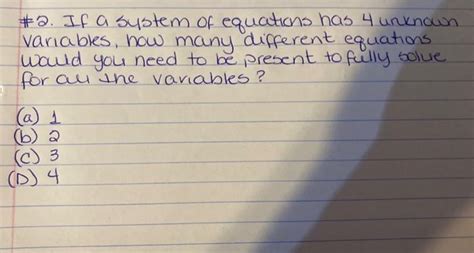 #2. If a system of equations has 4 unknown
variables, how many different equations
would you need to be present to fully solve
for all the variables?
(a) 1
(b) 2
(c) 3
(D) 4